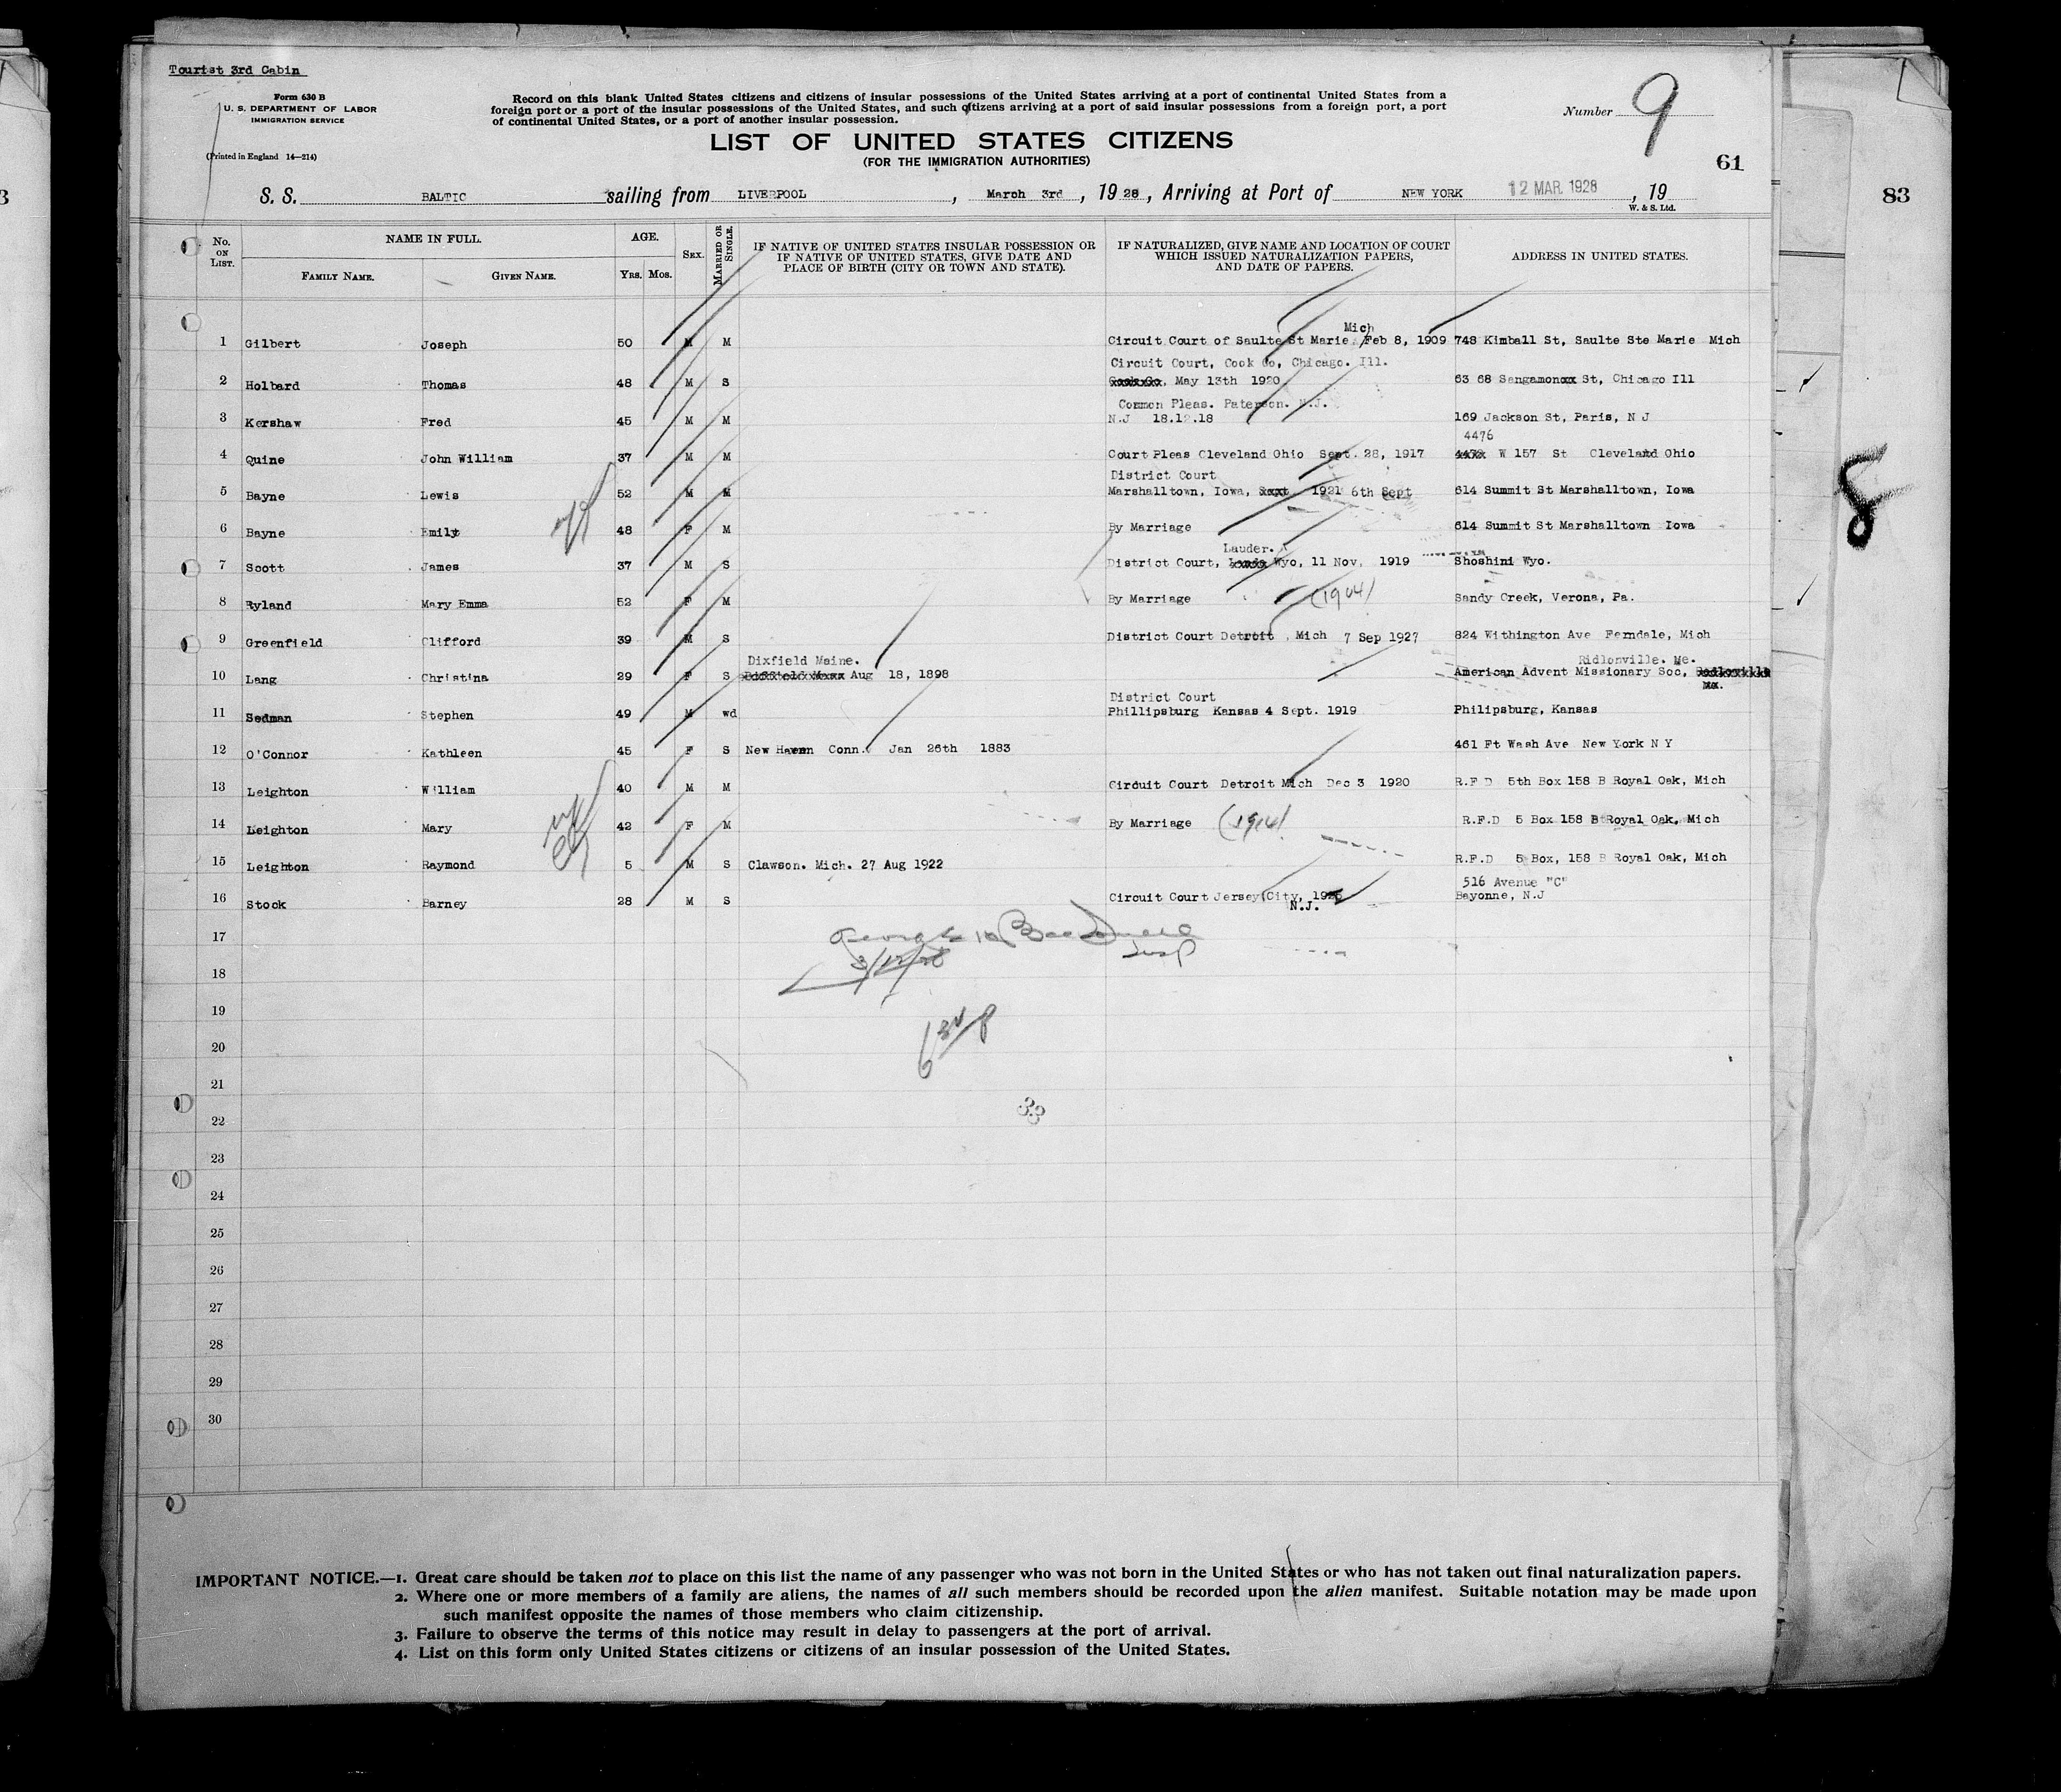 Tourist 3rd Cabin
Form 630 B
U. S. DEPARTMENT OF LABOR
IMMIGRATION SERVICE
(Printed in England 14—214)
Record on this blank United States citizens and citizens of insular possessions of the United States arriving at a port of continental United States from a
foreign port or a port of the insular possessions of the United States, and such citizens arriving at a port of said insular possessions from a foreign port, a port
of continental United States, or a port of another insular possession.
Number 9
LIST OF UNITED STATES CITIZENS
(FOR THE IMMIGRATION AUTHORITIES)
61
83
S. S. BALTIC sailing from LIVERPOOL, March 3rd, 1928, Arriving at Port of NEW YORK 12 MAR. 1928, 19
W. & S. Ltd.
No. ON LIST. NAME IN FULL. FAMILY NAME. GIVEN NAME. AGE. YRS. MOS. SEX. MARRIED OR SINGLE. IF NATIVE OF UNITED STATES INSULAR POSSESSION OR IF NATIVE OF UNITED STATES, GIVE DATE AND PLACE OF BIRTH (CITY OR TOWN AND STATE). IF NATURALIZED, GIVE NAME AND LOCATION OF COURT WHICH ISSUED NATURALIZATION PAPERS, AND DATE OF PAPERS. ADDRESS IN UNITED STATES.
Mich
1 Gilbert Joseph 50 M M Circuit Court of Saulte St Marie Feb 8, 1909 748 Kimball St, Saulte Ste Marie Mich
Circuit Court, Cook Co, Chicago. Ill.
2 Holbard Thomas 48 M S May 13th 1920 63 68 Sangamon St, Chicago Ill
Common Pleas. Paterson. N.J.
3 Kershaw Fred 45 M M N.J 18.12.18 169 Jackson St, Paris, N J
4476
4 Quine John William 37 M M Court Pleas Cleveland Ohio Sept. 28, 1917 W 157 St Cleveland Ohio
District Court
5 Bayne Lewis 52 M M Marshalltown, Iowa, 1921 6th Sept 614 Summit St Marshalltown, Iowa
6 Bayne Emily 48 F M By Marriage 614 Summit St Marshalltown Iowa
Lauder.
7 Scott James 37 M S District Court, Wyo, 11 Nov, 1919 Shoshini Wyo.
8 Ryland Mary Emma 52 F M By Marriage (1904) Sandy Creek, Verona, Pa.
9 Greenfield Clifford 39 M S District Court Detroit, Mich 7 Sep 1927 824 Withington Ave Ferndale, Mich
Dixfield Maine. Ridlonville. Me.
10 Lang Christina 29 F S Aug 18, 1898 American Advent Missionary Soc,
District Court
11 Sedman Stephen 49 M wd Phillipsburg Kansas 4 Sept. 1919 Philipsburg, Kansas
12 O'Connor Kathleen 45 F S New Haven Conn. Jan 26th 1883 461 Ft Wash Ave New York N Y
13 Leighton William 40 M M Circuit Court Detroit Mich Dec 3 1920 R.F D 5th Box 158 B Royal Oak, Mich
14 Leighton Mary 42 F M By Marriage (1914) R.F.D 5 Box 158 B Royal Oak, Mich
15 Leighton Raymond 5 M S Clawson. Mich. 27 Aug 1922 R.F.D 5 Box, 158 B Royal Oak, Mich
516 Avenue "C"
16 Stock Barney 28 M S Circuit Court Jersey City, N.J. Bayonne, N.J
17
3/12/28
18
19
20
21
22
23
24
25
26
27
28
29
30
IMPORTANT NOTICE.—1. Great care should be taken not to place on this list the name of any passenger who was not born in the United States or who has not taken out final naturalization papers.
2. Where one or more members of a family are aliens, the names of all such members should be recorded upon the alien manifest. Suitable notation may be made upon
such manifest opposite the names of those members who claim citizenship.
3. Failure to observe the terms of this notice may result in delay to passengers at the port of arrival.
4. List on this form only United States citizens or citizens of an insular possession of the United States.